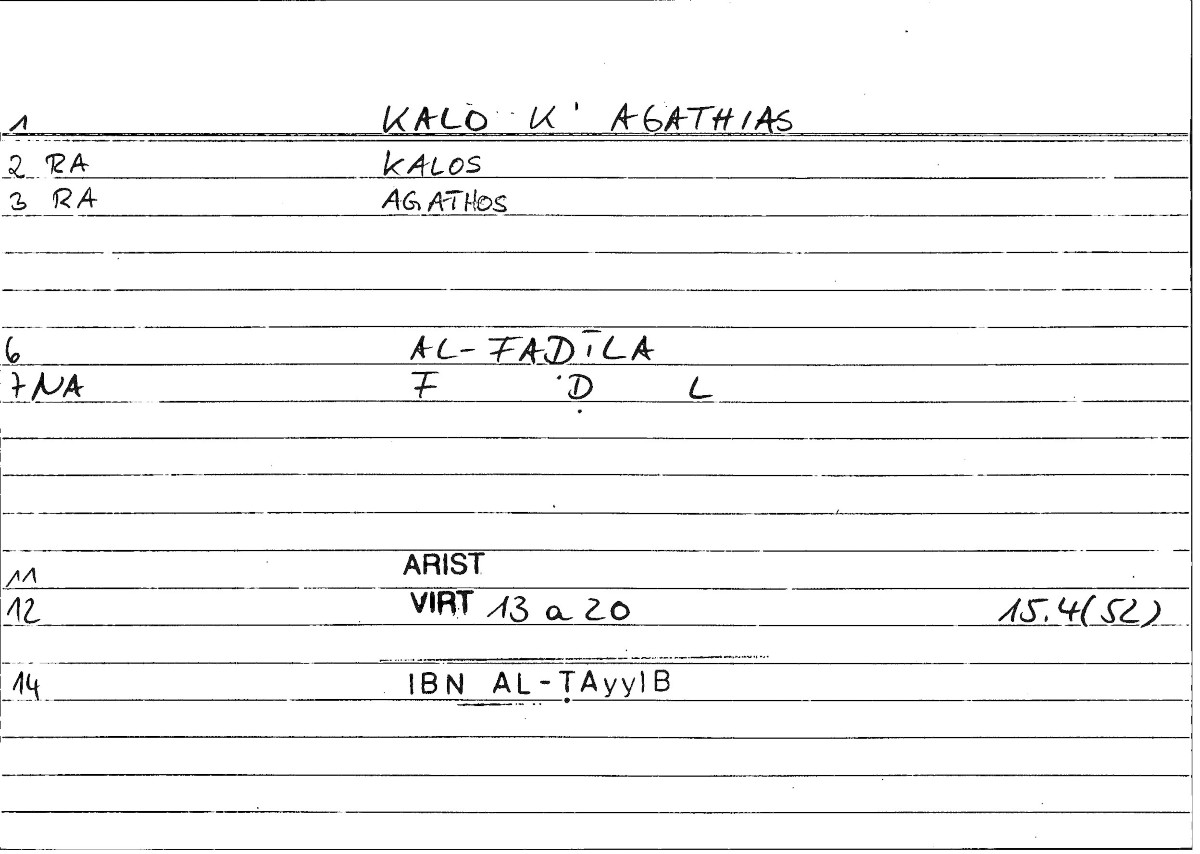 1 KALO K' AGATHIAS
2 RA KALOS
3 RA AGATHOS
6 AL-FADĪLA
7 NA F Ḍ L
11 ARIST
12 VIRT 13 a 20 15.4(52)
14 IBN AL-ṬAyyIB